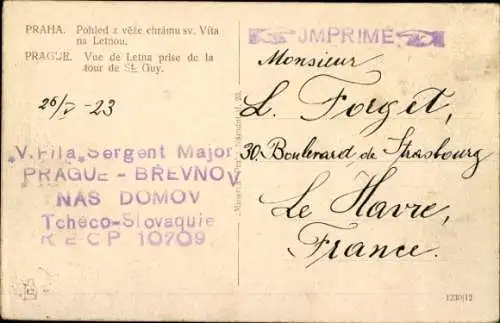 PRAHA. Pohled z věže chrámu sv. Víta
na Letnou.
PRAGUE. Vue de Letna prise de la
tour de St. Guy.
26/V - 23
„V. Fila„ Sergent Major
PRAGUE - BŘEVNOV
NÁŠ DOMOV
Tchéco-Slovaquie
RECP 10709
JMPRIMÉ
Monsieur
L. Forget,
30. Boulevard de Strasbourg
Le Havre,
France.
1230|12